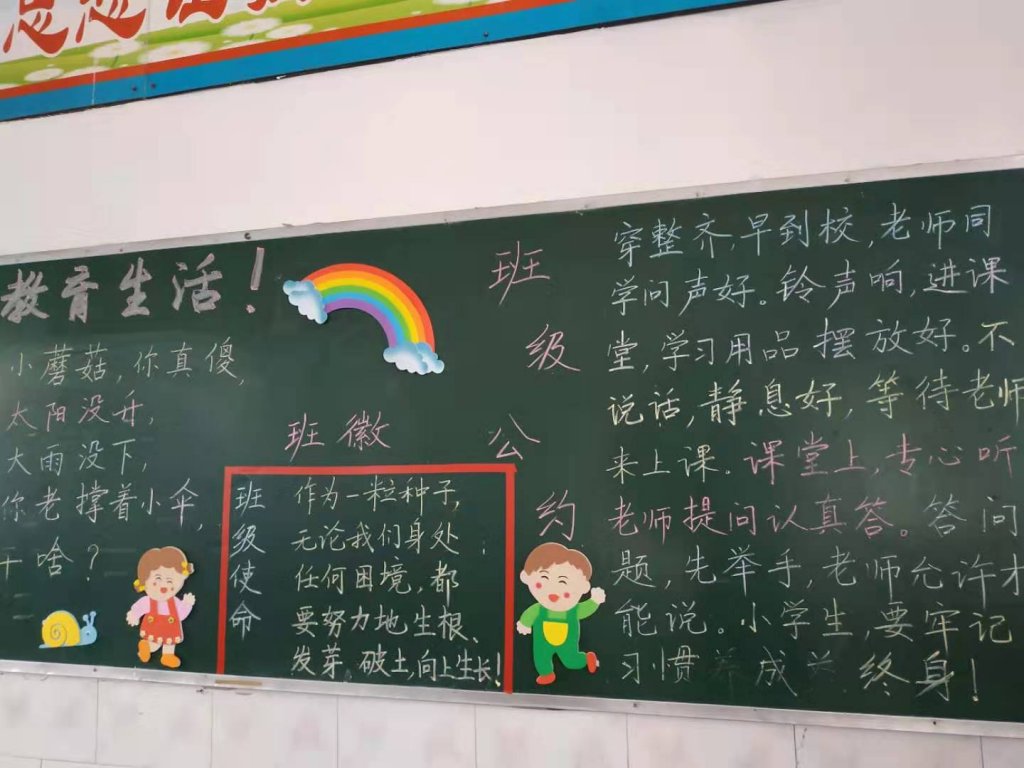 教育生活！
小蘑菇，你真傻，
太阳没升，
大雨没下，
你老撑着小伞，
干啥？
班徽
班级使命
作为一粒种子，
无论我们身处
任何困境，都
要努力地生根、
发芽、破土，向上生长！
班级公约
穿整齐，早到校，老师同
学问声好。铃声响，进课
堂，学习用品摆放好。不
说话，静息好，等待老师
来上课。课堂上，专心听
老师提问认真答。答问
题，先举手，老师允许才
能说。小学生，要牢记
习惯养成关终身！